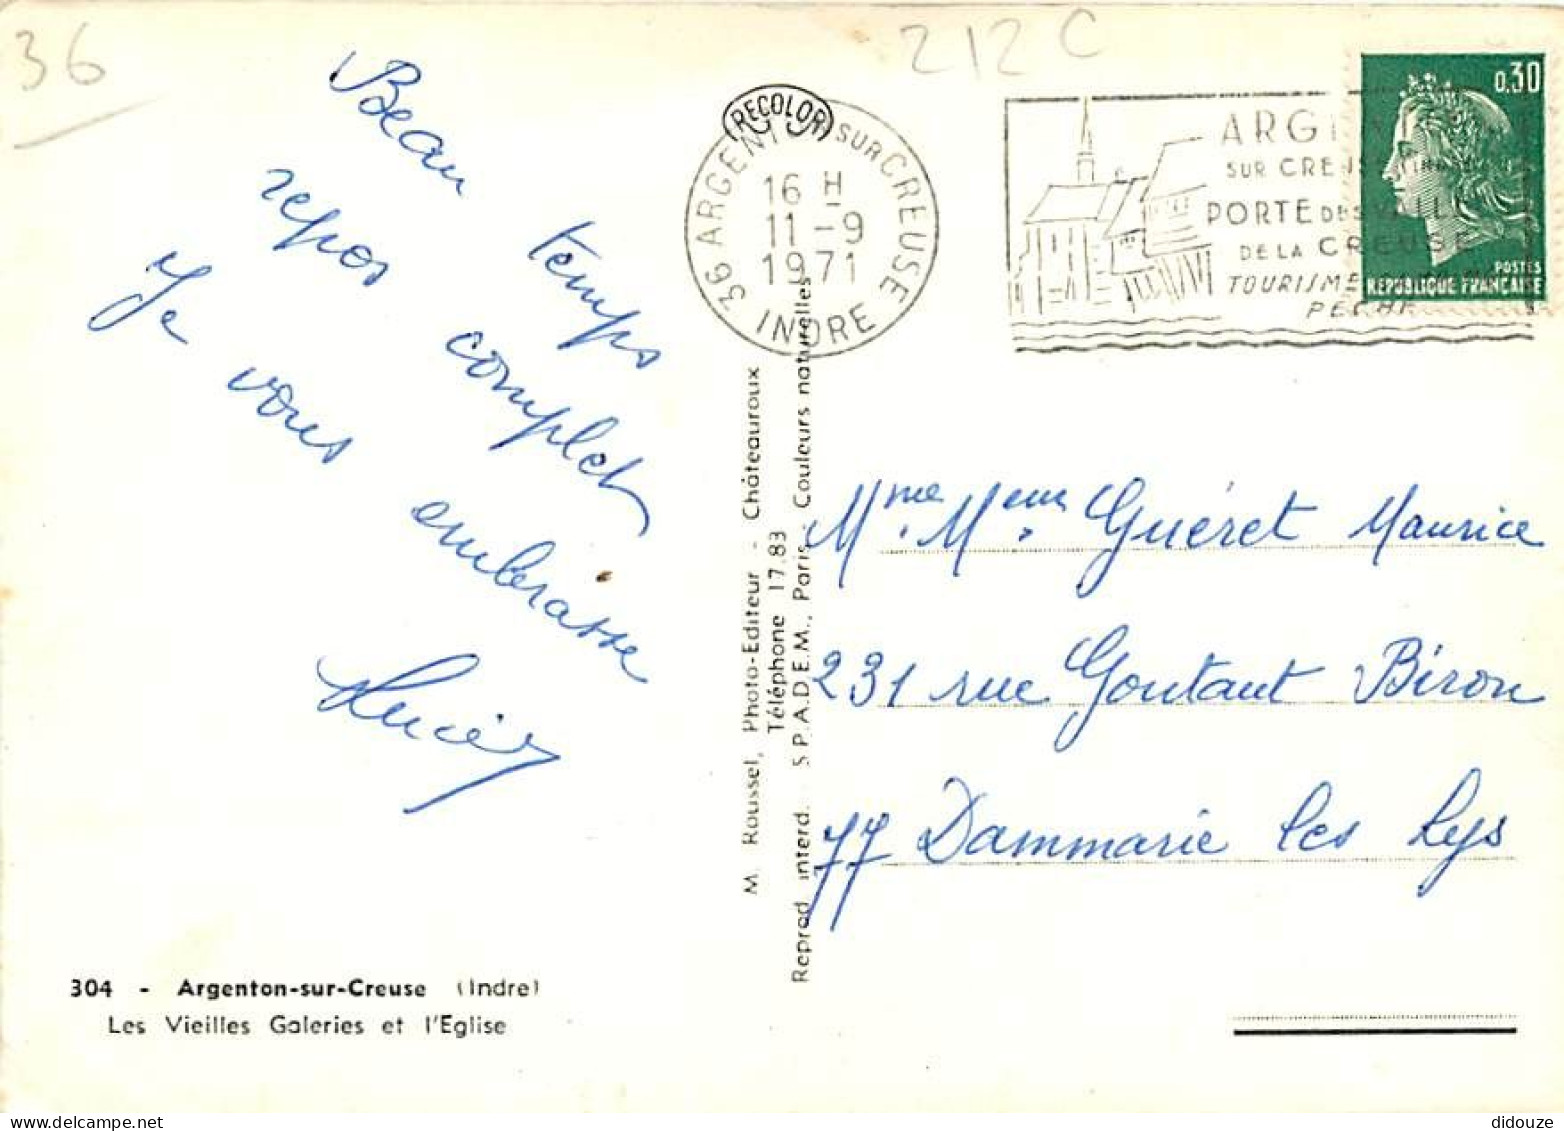 36
212 C
Beau temps
repos complet
Je vous embrasse
RECOLOR
36 ARGENTON SUR CREUSE
16 H
11-9
1971
INDRE
SUR CREUSE
PORTE DES VALLÉES
DE LA CREUSE
TOURISME
PECHE
0,30
POSTES
REPUBLIQUE FRANÇAISE
M. Roussel, Photo-Editeur - Châteauroux
Téléphone 17.83
Reprod. interd. - S.P.A.D.E.M., Paris - Couleurs naturelles
Mme. Meur. Guéret Maurice
231 rue Goutant Biron
77 Dammarie les Lys
304 - Argenton-sur-Creuse (Indre)
Les Vieilles Galeries et l'Eglise
didouze